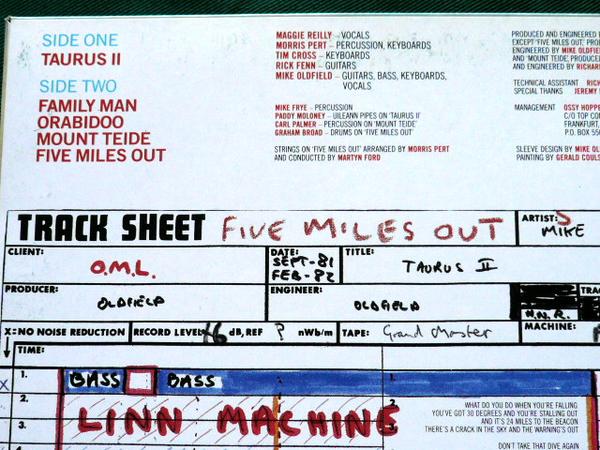 SIDE ONE
TAURUS II
SIDE TWO
FAMILY MAN
ORABIDOO
MOUNT TEIDE
FIVE MILES OUT
MAGGIE REILLY – VOCALS
MORRIS PERT – PERCUSSION, KEYBOARDS
TIM CROSS – KEYBOARDS
RICK FENN – GUITARS
MIKE OLDFIELD – GUITARS, BASS, KEYBOARDS,
VOCALS
MIKE FRYE – PERCUSSION
PADDY MOLONEY – UILEANN PIPES ON 'TAURUS II'
CARL PALMER – PERCUSSION ON 'MOUNT TEIDE'
GRAHAM BROAD – DRUMS ON 'FIVE MILES OUT'
STRINGS ON 'FIVE MILES OUT' ARRANGED BY MORRIS PERT
AND CONDUCTED BY MARTYN FORD
PRODUCED AND ENGINEERED
EXCEPT 'FIVE MILES OUT'
ENGINEERED BY MIKE
AND 'MOUNT TEIDE',
AND ENGINEERED BY
TECHNICAL ASSISTANT
SPECIAL THANKS JEREMY
MANAGEMENT OSSY
C/O TOP
FRANKFURT,
P.O. BOX
SLEEVE DESIGN BY MIKE
PAINTING BY GERALD
TRACK SHEET FIVE MILES OUT
ARTIST:
MIKE
CLIENT:
O.M.L.
DATE:
SEPT-81
FEB-82
TITLE:
TAURUS II
PRODUCER:
OLDFIELD
ENGINEER:
OLDFIELD
N.N.R.
X=NO NOISE REDUCTION
RECORD LEVEL +6 dB, REF ? nWb/m
TAPE: Grand Master
MACHINE:
TIME:
X
1.
BASS BASS
1.
2.
3.
LINN MACHINE
WHAT DO YOU DO WHEN YOU'RE FALLING
YOU'VE GOT 30 DEGREES AND YOU'RE STALLING OUT
AND IT'S 24 MILES TO THE BEACON
THERE'S A CRACK IN THE SKY AND THE WARNING'S OUT
DON'T TAKE THAT DIVE AGAIN